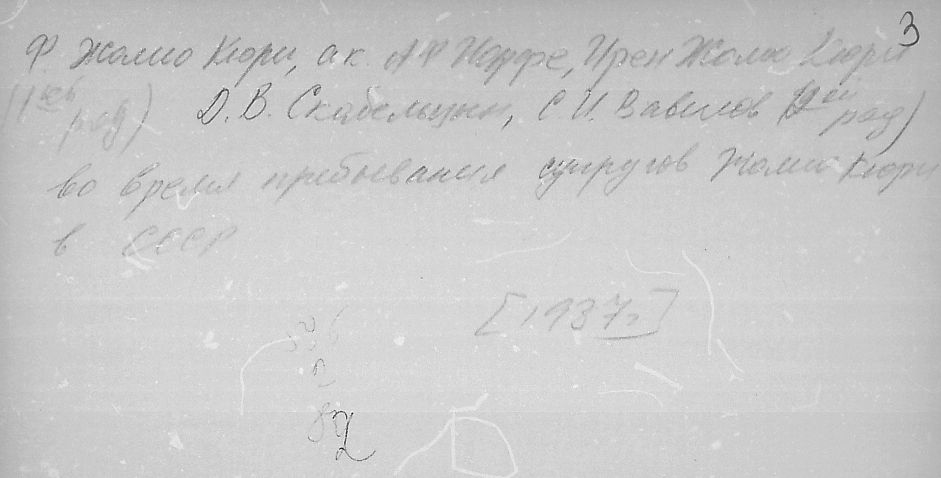 3
Ф. Жолио Кюри, ак. А Ф Иоффе, Ирен Жолио Кюри
(1ый ряд) Д. В. Скобельцын, С. И. Вавилов (2ой ряд)
во время пребывания супругов Жолио Кюри
в СССР
[1937г]